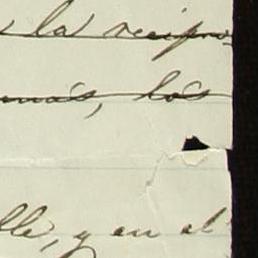 la recipro
más, los
lle, y en el